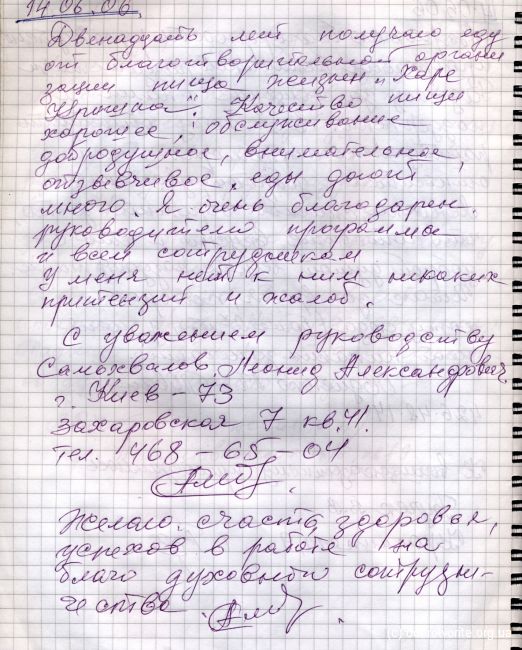 14.06.06.
Двенадцать лет получаю еду
от благотворительной органи
зации пища жизни „Харе
Кришна". Качество пищи
хорошее, обслуживание
добродушное, внимательное,
отзывчивое, еды дают
много. Я очень благодарен.
руководителю программы
и всем сотрудникам
У меня нет к ним никаких
притензий и жалоб.
С уважением руководству
Самохвалов Леонид Александрович,
г. Киев – 73
Захаровская 7 кв. 41.
тел. 468 – 65 – 04
Желаю счастья, здоровья,
успехов в работе на
благо духовного сотрудни-
чества.